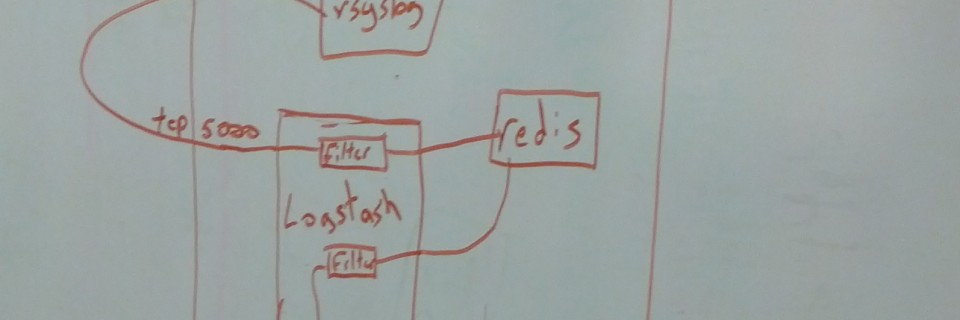 rsyslog
tcp 5000
Filter
redis
Logstash
Filter